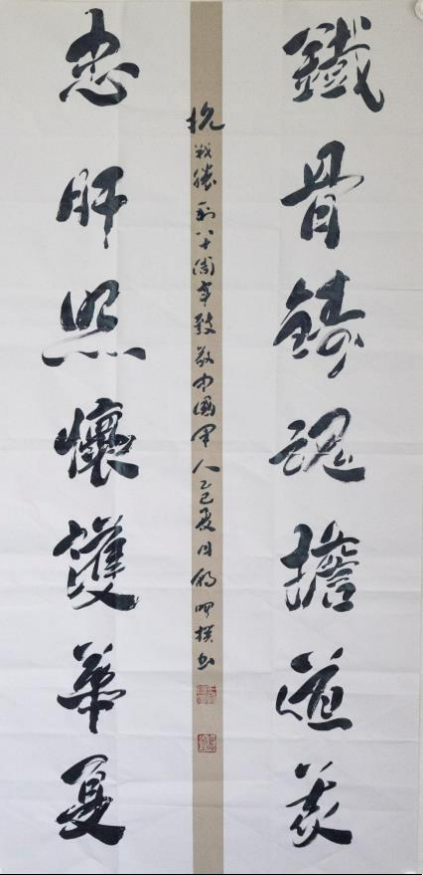 鐵骨鑄魂擔道義
忠肝照懷護華夏
抗戰勝利八十周年致敬中国軍人乙巳夏月